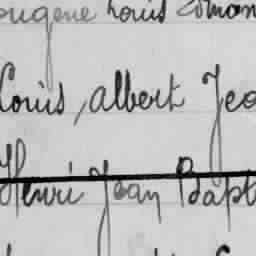 Eugène Louis Roman
Louis, Albert Jea
Henri Jean Bapt